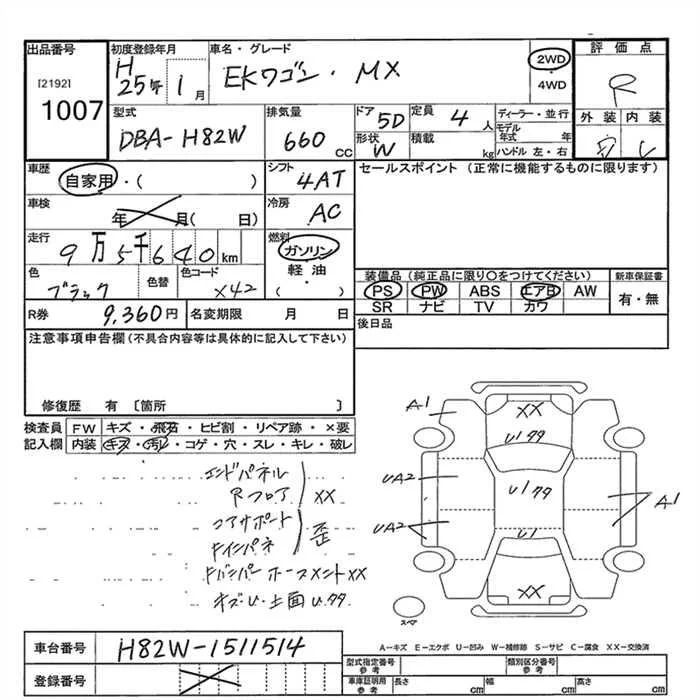 出品番号
[2192]
1007
初度登録年月
H 25年 1月
車名・グレード
EKワゴン・MX
2WD
・
4WD
評価点
R
外装 内装
型式
DBA-H82W
排気量
660 cc
ドア 5D
形状 W
定員 4 人
積載 kg
ディーラー・並行
モデル年式 年
ハンドル 左・右
車歴
自家用・( )
シフト
4AT
セールスポイント (正常に機能するものに限ります)
車検
年 月( 日)
冷房
AC
走行
9万5千640km
燃料
ガソリン
軽油
( )
色
ブラック
色替
色コード
X42
装備品(純正品に限り○をつけてください)
PS PW ABS エアB AW
SR ナビ TV カワ
新車保証書
有・無
R券 9,360円
名変期限 月 日
後日品
注意事項申告欄(不具合内容等は具体的に記入して下さい)
修復歴 有 〔箇所 〕
検査員記入欄
FW キズ・飛石・ヒビ割・リペア跡・×要
内装 キズ・汚レ・コゲ・穴・スレ・キレ・破レ
エンドパネル
Rフロア XX
コアサポート
インパネ 歪
ホースメントXX
A1
XX
U199
UA2
U199
A1
UA2
U1
XX
スペア
A-キズ E-エクボ U-凹み W-補修跡 S-サビ C-腐食 XX-交換済
車台番号 H82W-1511514
登録番号
型式指定番号参考
類別区分番号参考
車庫証明用参考 長さ cm 幅 cm 高さ cm